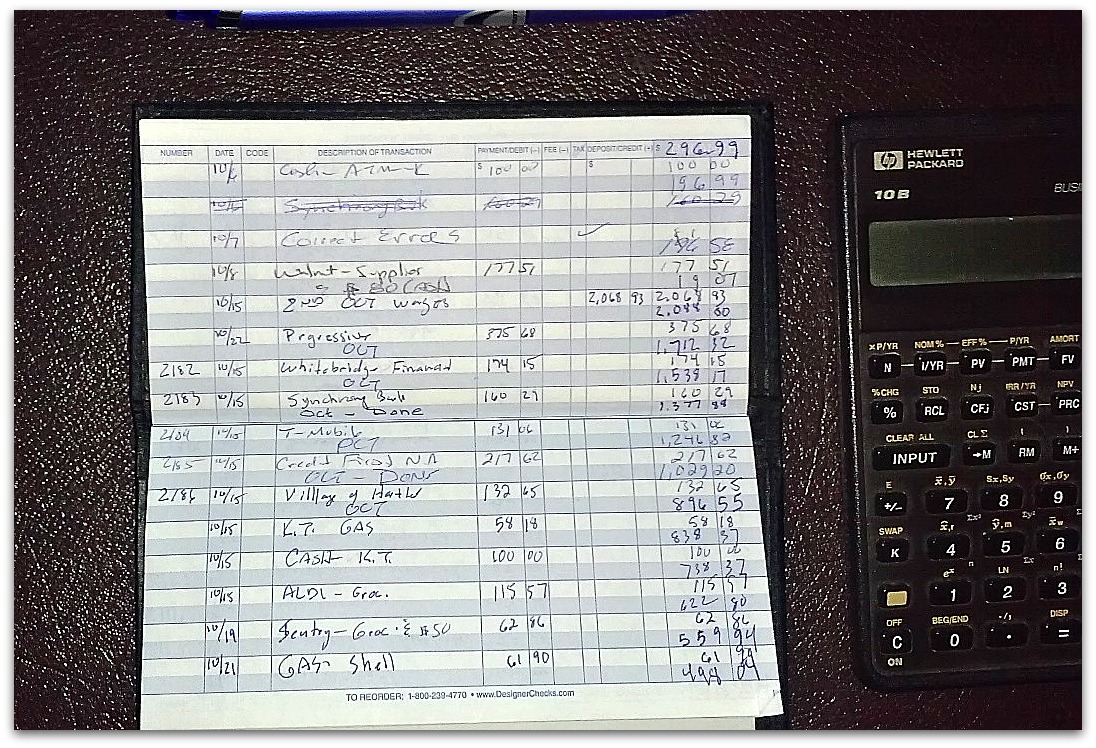 NUMBER DATE CODE DESCRIPTION OF TRANSACTION PAYMENT/DEBIT (–) FEE (–) TAX DEPOSIT/CREDIT (+) $ 296 99
Cash - ATM $ 100 00 $ 100 00
196 99
160 29
10/7 Correct Errors
196 58
10/8 Supplies 177 51 177 51
$80 CASH 19 07
10/15 2ND OCT Wages 2,068 93 2,068 93
2,088 00
10/22 Prgressive 375 68 375 68
OCT 1,712 32
2182 10/15 Whitebridge Financial 174 15 174 15
OCT 1,538 17
2183 10/15 Synchrony Bank 160 29 160 29
Oct - Done 1,377 88
10/15 T-Mobile 131 06 131 06
OCT 1,246 82
2185 10/15 Credit First NA 217 62 217 62
OCT - DONE 1,029 20
2186 10/15 Village of 132 65 132 65
OCT 896 55
10/15 K.T. GAS 58 18 58 18
838 37
10/15 CASH - K.T. 100 00 100 00
738 37
10/15 ALDI - Groc. 115 57 115 57
622 80
10/19 Sentry - Groc. & $50 62 86 62 86
559 94
10/21 GAS - Shell 61 90 61 90
498 04
TO REORDER: 1-800-239-4770 • www.DesignerChecks.com
hp HEWLETT
PACKARD
10B BUSI
×P/YR NOM% EFF% P/YR AMORT
N I/YR PV PMT FV
%CHG STO Nj IRR/YR NPV
% RCL CFj CST PRC
CLEAR ALL CLΣ ( )
INPUT →M RM M+
E x̄,ȳ Sx,Sy σx,σy
+/- 7 8 9
SWAP x̂,r ŷ,m x̄w
K 4 5 6
eˣ LN n!
1 2 3
OFF BEG/END ./, DISP
C 0 . =
ON